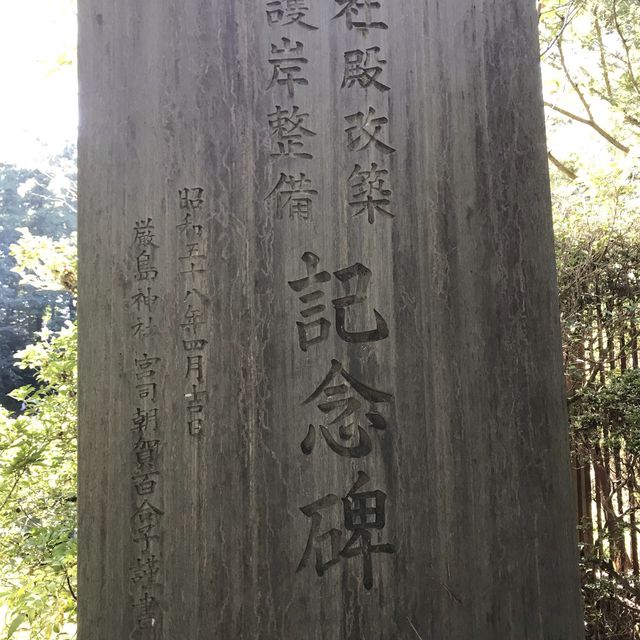 社殿改築
護岸整備
記念碑
昭和五十八年四月吉日
厳島神社宮司朝賀百合子謹書